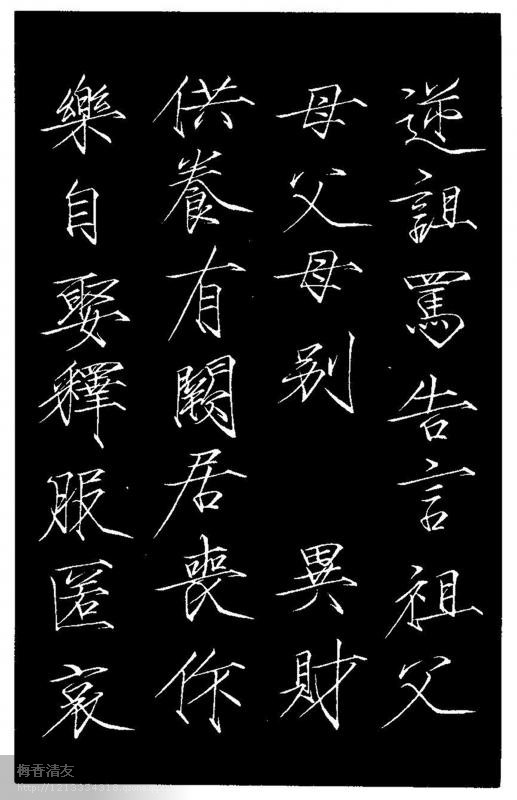 逆詛罵告言祖父
母父母别 異財
供養有闕居喪作
樂自娶釋服匿哀
梅香清友